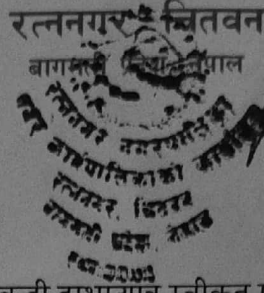 रत्ननगर, चितवन
बागमती प्रदेश, नेपाल
रत्ननगर नगरपालिका
नगर कार्यपालिकाको कार्यालय
रत्ननगर, चितवन
बागमती प्रदेश, नेपाल
स्वीकृत